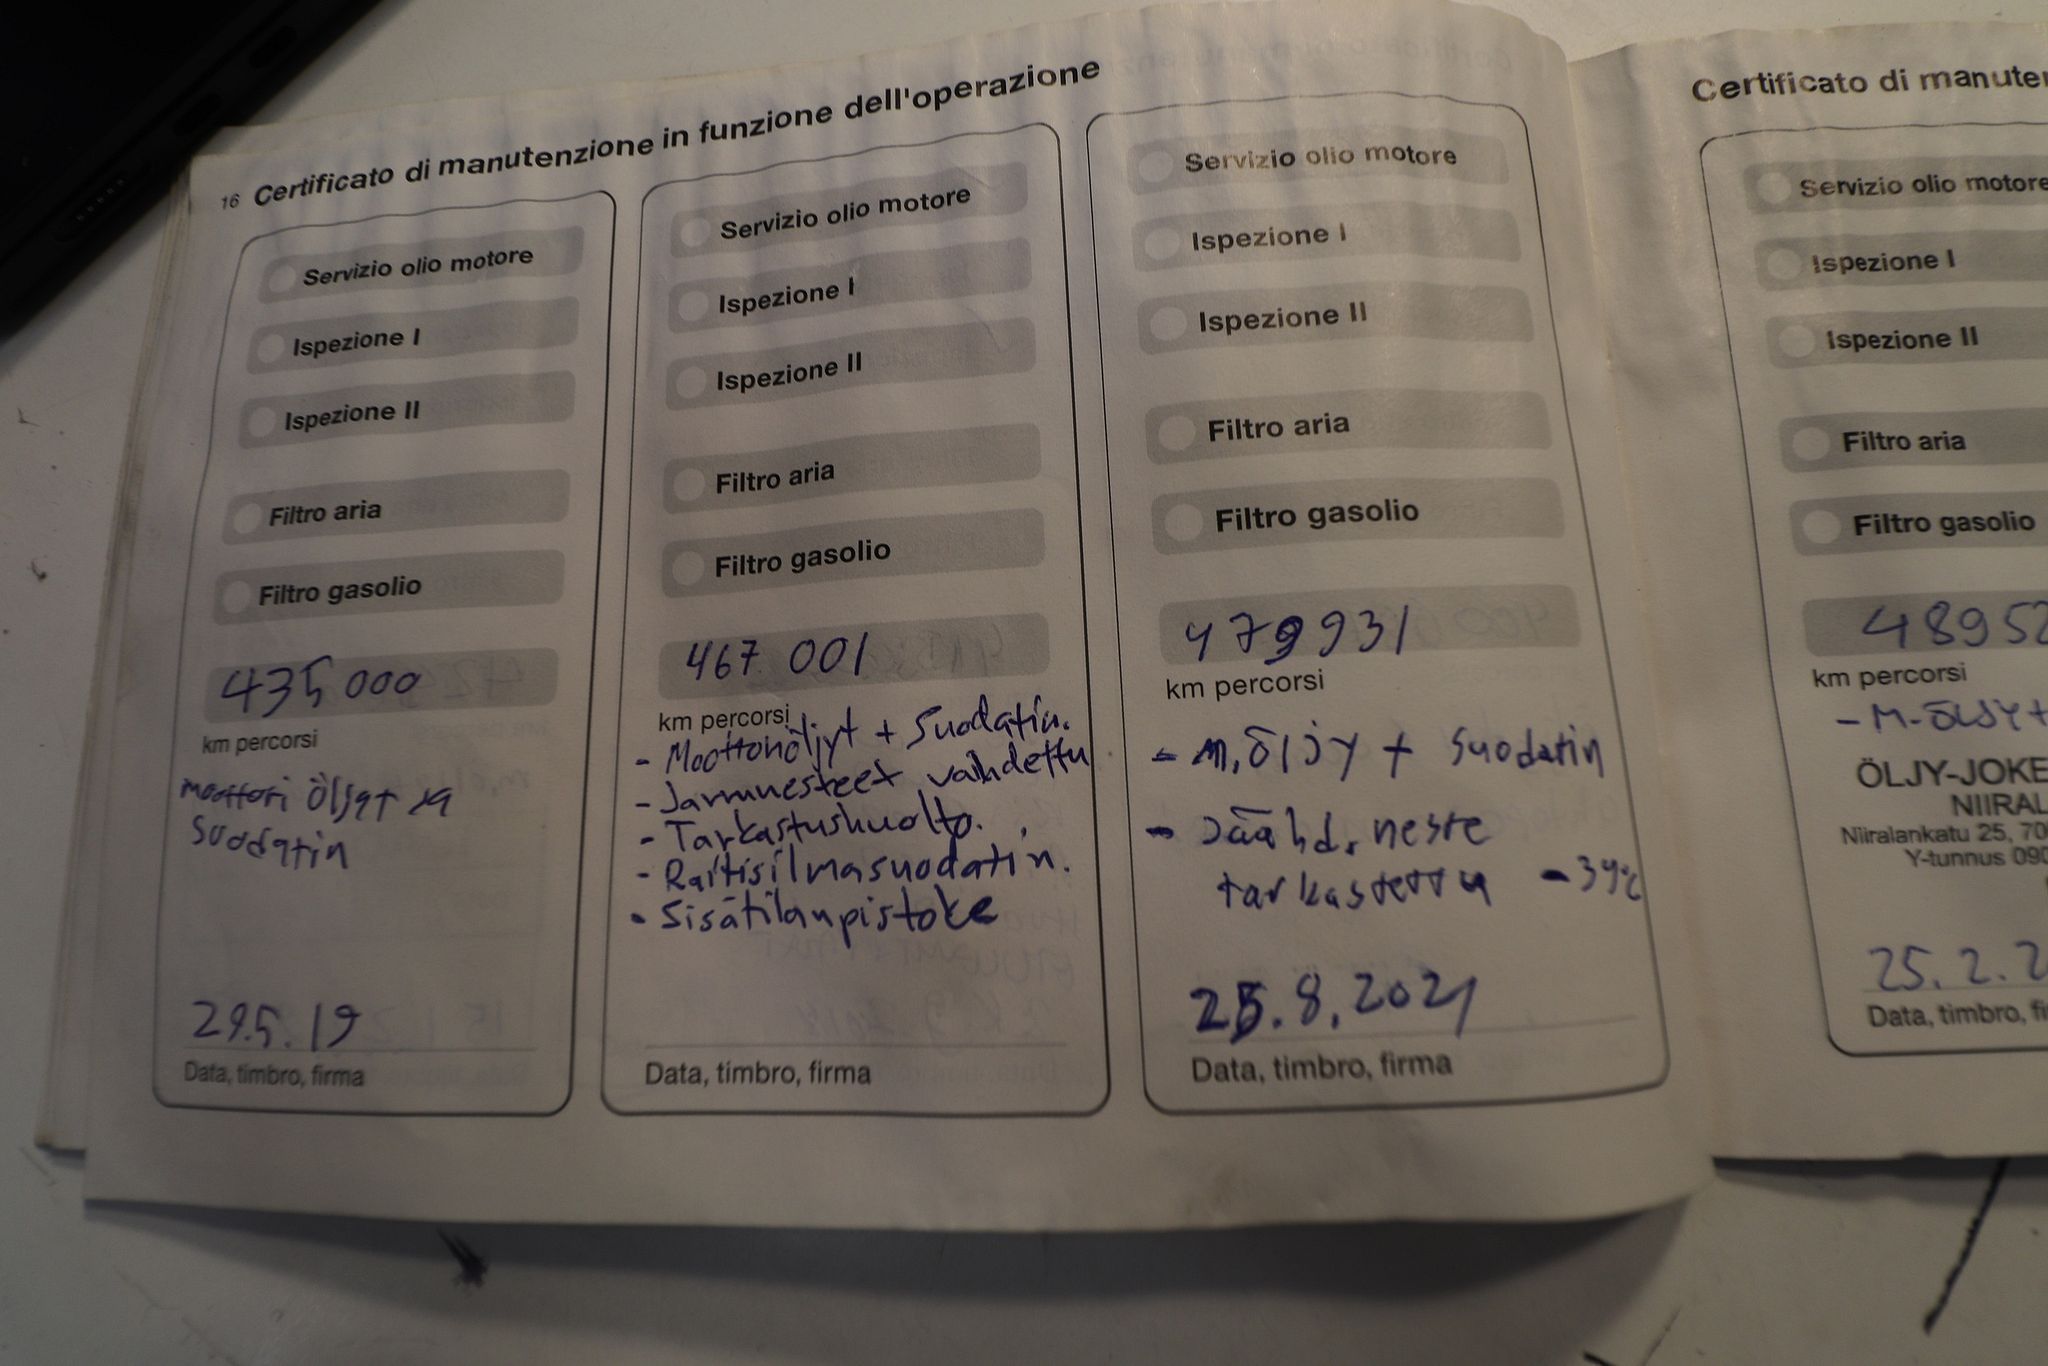 16 Certificato di manutenzione in funzione dell'operazione
Servizio olio motore
Ispezione I
Ispezione II
Filtro aria
Filtro gasolio
435 000
km percorsi
moottori öljyt ja
suodatin
29.5.19
Data, timbro, firma
Servizio olio motore
Ispezione I
Ispezione II
Filtro aria
Filtro gasolio
467 001
km percorsi
- Moottoriöljyt + Suodatin.
- Jarrunesteet vaihdettu
- Tarkastushuolto.
- Raitisilmasuodatin.
- Sisätilanpistoke
Data, timbro, firma
Servizio olio motore
Ispezione I
Ispezione II
Filtro aria
Filtro gasolio
479931
km percorsi
- M.öljy + suodatin
- Jäähd. neste
tarkastettu
25.8.2021
Data, timbro, firma
Certificato di manuten
Servizio olio motore
Ispezione I
Ispezione II
Filtro aria
Filtro gasolio
48952
km percorsi
- M-ÖLJY+
ÖLJY-JOKE
NIIRAL
Niiralankatu 25, 70
Y-tunnus 090
25.2.2
Data, timbro, fi